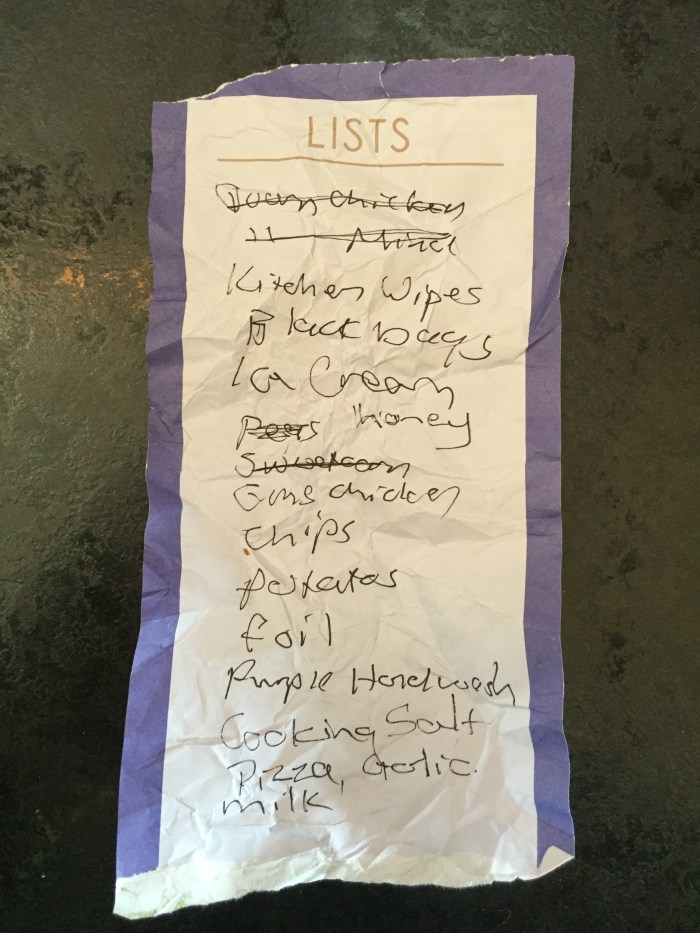 LISTS
Chicken
11 Mince
Kitchen Wipes
Black bags
Ice Cream
Peas Honey
Sweetcorn
Chicken
Chips
Potatos
foil
Purple Handwash
Cooking Salt
Pizza, Garlic.
milk